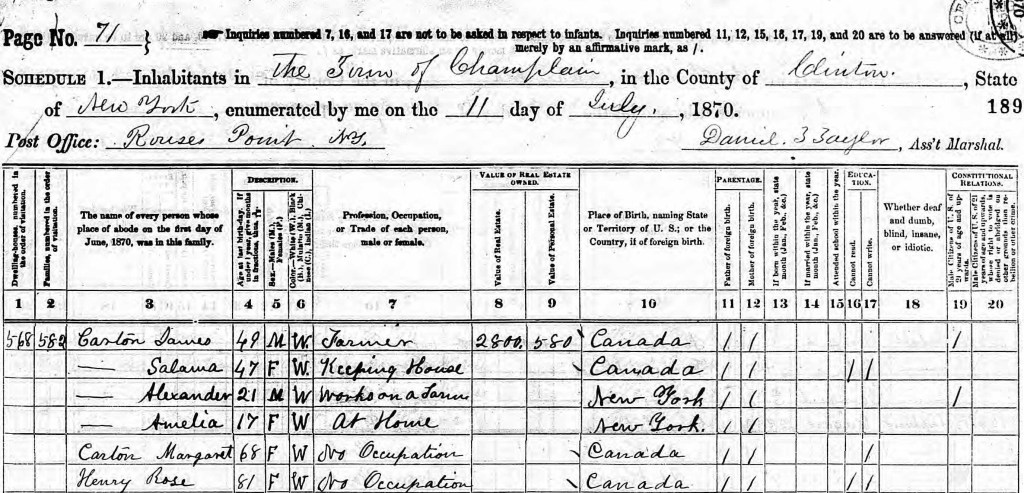 Page No. 71 } Inquiries numbered 7, 16, and 17 are not to be asked in respect to infants. Inquiries numbered 11, 12, 15, 16, 17, 19, and 20 are to be answered (if at all)
merely by an affirmative mark, as /.
SCHEDULE 1.—Inhabitants in the Town of Champlain, in the County of Clinton, State
of New York, enumerated by me on the 11 day of July, 1870. 189
Post Office: Rouses Point N.Y. Daniel Taylor, Ass't Marshal.
Dwelling-houses, numbered in the order of visitation.
Families, numbered in the order of visitation.
The name of every person whose place of abode on the first day of June, 1870, was in this family.
DESCRIPTION.
Age at last birth-day. If under 1 year, give months in fractions, thus,
Sex.—Males (M.), Females (F.)
Color.—White (W.), Black (B.), Mulatto (M.), Chinese (C.), Indian (I.)
Profession, Occupation, or Trade of each person, male or female.
VALUE OF REAL ESTATE OWNED.
Value of Real Estate.
Value of Personal Estate.
Place of Birth, naming State or Territory of U. S.; or the Country, if of foreign birth.
PARENTAGE.
Father of foreign birth.
Mother of foreign birth.
If born within the year, state month (Jan., Feb., &c.)
If married within the year, state month (Jan., Feb., &c.)
Attended school within the year.
EDUCATION.
Cannot read.
Cannot write.
Whether deaf and dumb, blind, insane, or idiotic.
CONSTITUTIONAL RELATIONS.
Male Citizens of U. S. of 21 years of age and upwards.
Male Citizens of U. S. of 21 years of age and upwards, whose right to vote is denied or abridged on other grounds than rebellion or other crime.
1 2 3 4 5 6 7 8 9 10 11 12 13 14 15 16 17 18 19 20
568 582 Carton James 49 M W Farmer 2800 580 Canada / / /
— Salama 47 F W Keeping House Canada / / / /
— Alexander 21 M W Works on a Farm New York / / /
— Amelia 17 F W At Home New York. / /
Carton Margaret 68 F W No Occupation Canada / / /
Henry Rose 81 F W No Occupation Canada / / / /